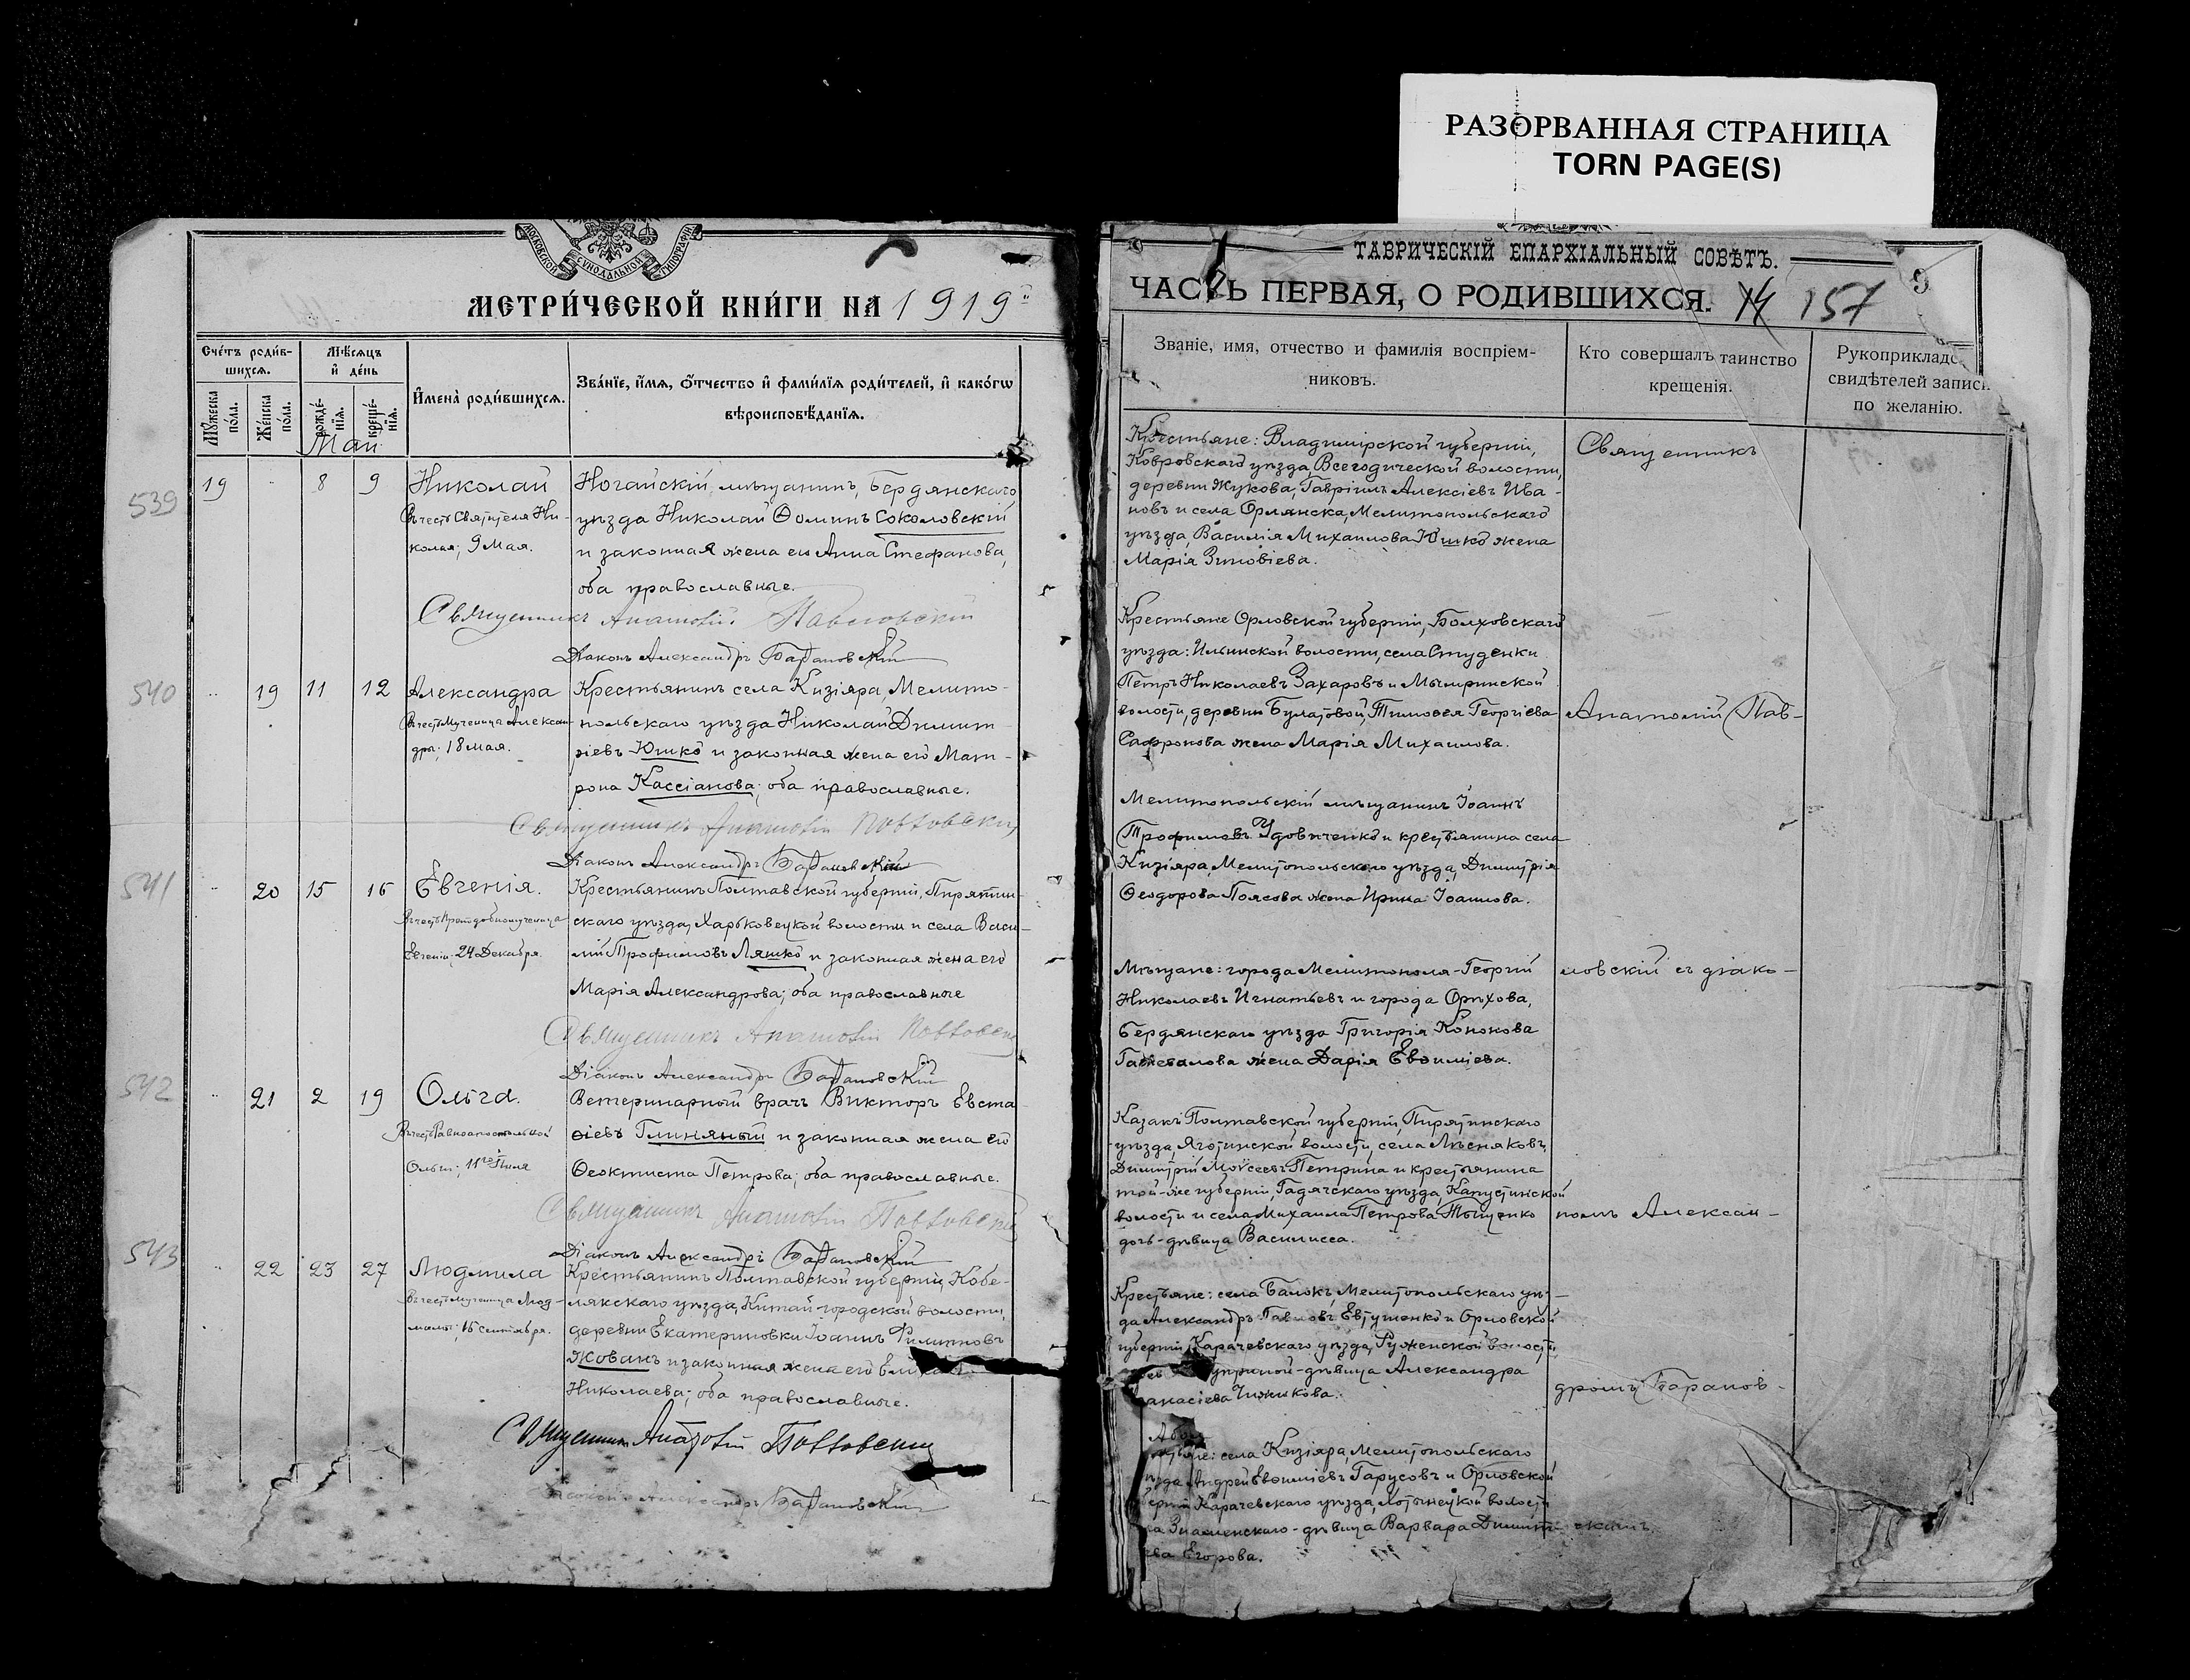 РАЗОРВАННАЯ СТРАНИЦА
TORN PAGE(S)
МОСКОВСКОЙ СѴНОДАЛЬНОЙ ТИПОГРАФІИ
МЕТРИ́ЧЕСКОЙ КНИ́ГИ НА 1919
Сче́тъ роди́в-
шихся.
Мѣ́сяцъ
и҆ де́нь
И҆мена̀ роди́вшихся.
Зва́нїе, и҆́мя, ѻ҆́тчество и҆ фами́лїя роди́телей, и҆ како́гѡ
вѣроисповѣ́данїя.
Мꙋ́жеска
по́ла.
Же́нска
по́ла.
рожде́-
нїя.
креще́-
нїя.
Май
539
19 8 9 Николай
Въ честь Святителя Ни-
колая; 9 Мая.
Ногайскій мѣщанинъ, Бердянскаго
уѣзда Николай Ѳоминъ Соколовскій
и законная жена его Анна Стефанова,
оба православные.
Священникъ Анатолій
Діаконъ Александръ Барановскій
540
19 11 12 Александра
Въ честь Мученица Алексан-
дры; 18 мая.
Крестьянинъ села Кизіяра, Мелито-
польскаго уѣзда Николай Димит-
ріевъ Юшко и законная жена его Мат-
рона Кассіанова; оба православные.
Священникъ Анатолій
Діаконъ Александръ Барановскій
541
20 15 16 Евгенія.
Въ честь Преподобномученица
Евгеніи; 24 Декабря.
Крестьянинъ Полтавской губерніи, Пирятин-
скаго уѣзда, Харьковецкой волости и села Васи-
лій Трофимовъ Ляшко и законная жена его
Марія Александрова; оба православные
Священникъ Анатолій
Діаконъ Александръ Барановскій
542
21 2 19 Ольга.
Въ честь Равноапостольной
Ольги; 11го Іюля
Ветеринарный врачъ Викторъ Евста-
ѳіевъ Глиняный и законная жена его
Ѳеоктиста Петрова; оба православные.
Священникъ Анатолій
Діаконъ Александръ Барановскій
543
22 23 27 Людмила
Въ честь мученица Люд-
милы; 16 сентября.
Крестьянинъ Полтавской губерніи, Кобе-
лякскаго уѣзда, Китай-городской волости,
деревни Екатериновки Іоаннъ Филипповъ
Жованъ и законная жена его
Николаева; оба православные.
Священникъ Анатолій
Александръ Барановскій
ТАВРИЧЕСКІЙ ЕПАРХІАЛЬНЫЙ СОВѢТЪ.
ЧАСТЬ ПЕРВАЯ, О РОДИВШИХСЯ. 157
9
Званіе, имя, отчество и фамилія воспріем-
никовъ.
Кто совершалъ таинство
крещенія.
Рукоприкладс
свидѣтелей записи
по желанію.
Крестьяне: Владимірской губерніи,
Ковровскаго уѣзда, Всегодической волости,
деревни Жукова, Гавріилъ Алексіевъ Ива-
новъ и села Орлянска, Мелитопольскаго
уѣзда, Василія Михаилова Юшко жена
Марія Зиновіева.
Крестьяне Орловской губерніи, Болховскаго
уѣзда: Ильинской волости, села Студенки
Петръ Николаевъ Захаровъ и Мымринской
волости, деревни Булатовой, Тимоѳея Георгіева
Сафронова жена Марія Михаилова.
Мелитопольскій мѣщанинъ Іоаннъ
Трофимовъ Удовиченко и крестьянина села
Кизіяра, Мелитопольскаго уѣзда, Димитрія
Ѳеодорова Поясова жена Ирина Іоаннова.
Мѣщане: города Мелитополя - Георгій
Николаевъ Игнатьевъ и города Орѣхова,
Бердянскаго уѣзда Григорія Кононова
жена Дарія Евѳиміева.
Казакъ Полтавской губерніи, Пирятинскаго
уѣзда, Яготинской волости, села Лѣсняковъ,
Димитрій Моѵсеевъ Петрина и крестьянина
той-же губерніи, Гадячскаго уѣзда, Капустинской
волости и села Михаила Петрова Тыщенко
дочь - дѣвица Василисса.
Крестьяне: села Балокъ, Мелитопольскаго уѣз-
да Александръ Павловъ Евтушенко и Орловской
губерніи, Карачевскаго уѣзда, Руженской волости
дѣвица Александра
анасіева Чижикова.
села Кизіяра, Мелитопольскаго
уѣзда Андрей Евѳиміевъ Гарусовъ и Орловской
губерніи Карачевскаго уѣзда, Хотынецкой волости
Знаменскаго - дѣвица Варвара Димитрі-
ева Егорова.
Священникъ
Анатолій Пав-
ловскій съ діако-
номъ Алексан-
дромъ Баранов-
скимъ.